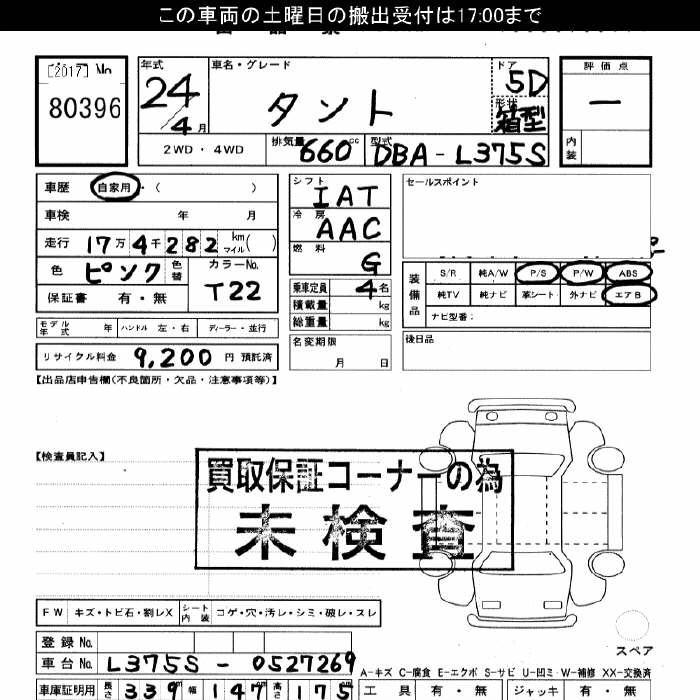 この車両の土曜日の搬出受付は17:00まで
[2017] No
80396
年式 車名・グレード ドア 評価点
24 タント 5D
4月 形状 箱型 ー
2WD・4WD 排気量 660cc 型式 DBA-L375S 内装
車歴 自家用・( )
車検 年 月
走行 17万4千282 km マイル( )
色 ピンク 色替 カラーNo.
保証書 有・無 T22
モデル年式 年 ハンドル 左・右 ディーラー・並行
リサイクル料金 9,200 円 預託済
シフト IAT
冷房 AAC
燃料 G
乗車定員 4名
積載量 kg
総重量 kg
名変期限
月 日
セールスポイント
装備品 S/R 純A/W P/S P/W ABS
純TV 純ナビ 革シート 外ナビ エアB
ナビ型番:
後日品
【出品店申告欄(不良箇所・欠品・注意事項等)】
【検査員記入】
買取保証コーナーの為
未検査
FW キズ・トビ石・割レX シート内装 コゲ・穴・汚レ・シミ・破レ・スレ
登録No.
スペア
車台No. L375S-0527269
A-キズ C-腐食 E-エクボ S-サビ U-凹ミ W-補修 XX-交換済
車庫証明用 長さ 339 幅 147 高さ 175 工具 有・無 ジャッキ 有・無